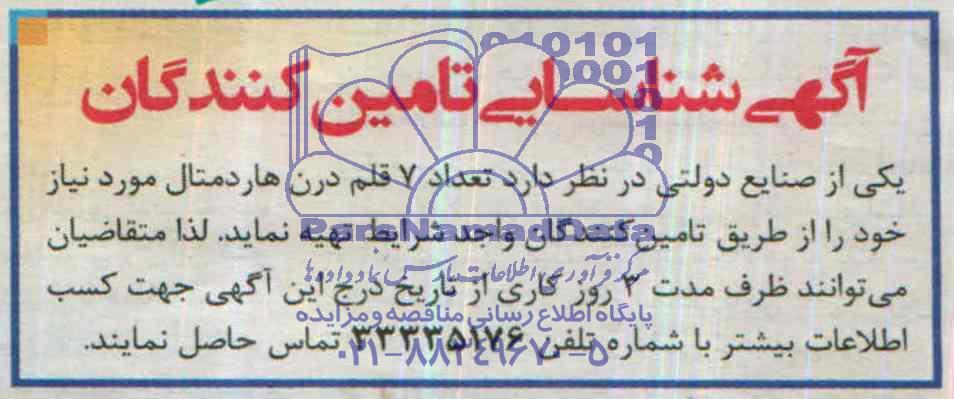 آگهی شناسایی تامین کنندگان
یکی از صنایع دولتی در نظر دارد تعداد ۷ قلم درن هاردمتال مورد نیاز
خود را از طریق تامین کنندگان واجد شرایط تهیه نماید. لذا متقاضیان
می‌توانند ظرف مدت ۳ روز کاری از تاریخ درج این آگهی جهت کسب
اطلاعات بیشتر با شماره تلفن ۳۳۳۳۵۱۷۶ تماس حاصل نمایند.
ParsNamadData
مرکز فرآوری اطلاعات پارس نماد داده‌ها
پایگاه اطلاع رسانی مناقصه و مزایده
۰۲۱-۸۸۳۴۹۶۷۰-۵